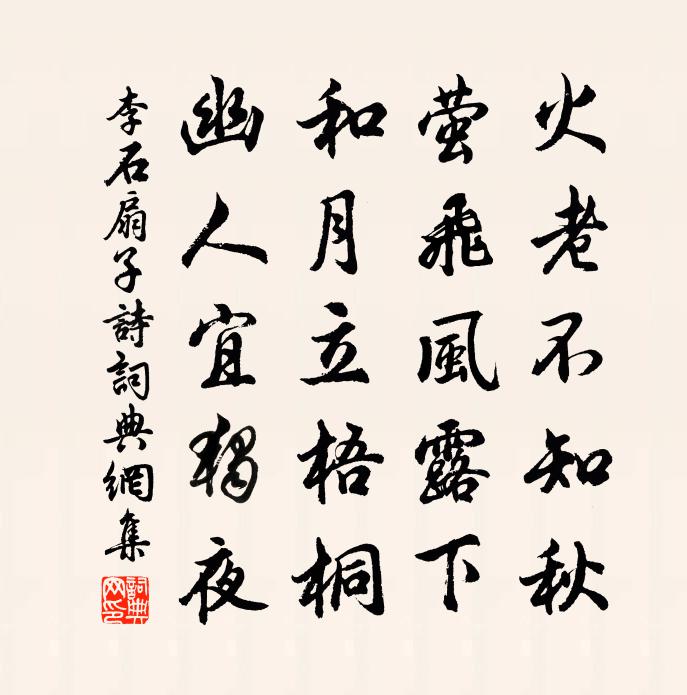 火老不知秋
萤飛風露下
和月立梧桐
幽人宜獨夜
李石扇子詩詞典網集
詞典網印